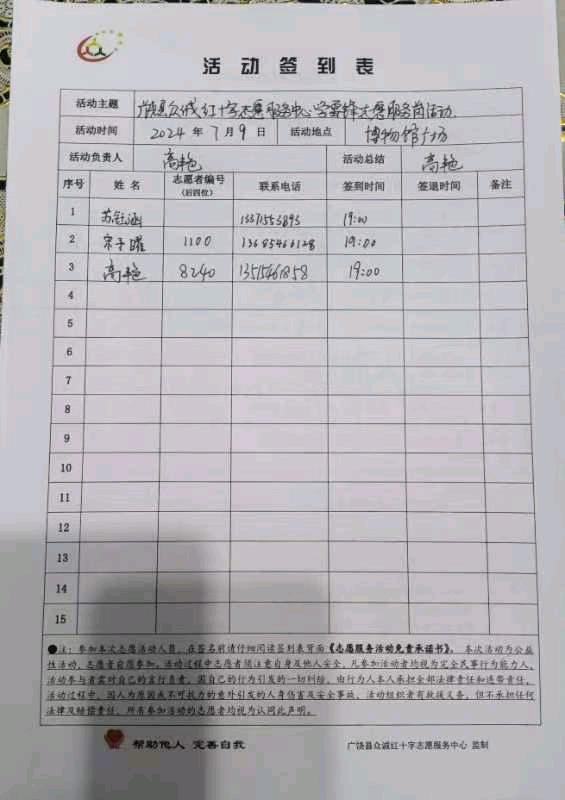 活动签到表
活动主题 广饶县众诚红十字志愿服务中心学雷锋志愿服务岗活动
活动时间 2024年7月9日 活动地点 博物馆广场
活动负责人 高艳 活动总结 高艳
序号 姓名 志愿者编号(后四位) 联系电话 签到时间 签退时间 备注
1 苏钰涵 19:00
2 宋子曜 1100 13685466128 19:00
3 高艳 8240 19:00
4
5
6
7
8
9
10
11
12
13
14
15
●注:参加本次志愿活动人员,在签名前请仔细阅读签到表背面《志愿服务活动免责承诺书》。本次活动为公益
性活动,志愿者自愿参加。活动过程中志愿者须注意自身及他人安全。凡参加活动者均视为完全民事行为能力人,
活动参与者需对自己的言行负责,因自己的行为引发的一切纠纷,由行为人本人承担全部法律责任和连带责任。
活动过程中,因人为原因或不可抗力的意外引发的人身伤害及安全事故,活动组织者有救援义务,但不承担任何
法律及赔偿责任。所有参加活动的志愿者均视为认同此声明。
帮助他人 完善自我 广饶县众诚红十字志愿服务中心 监制